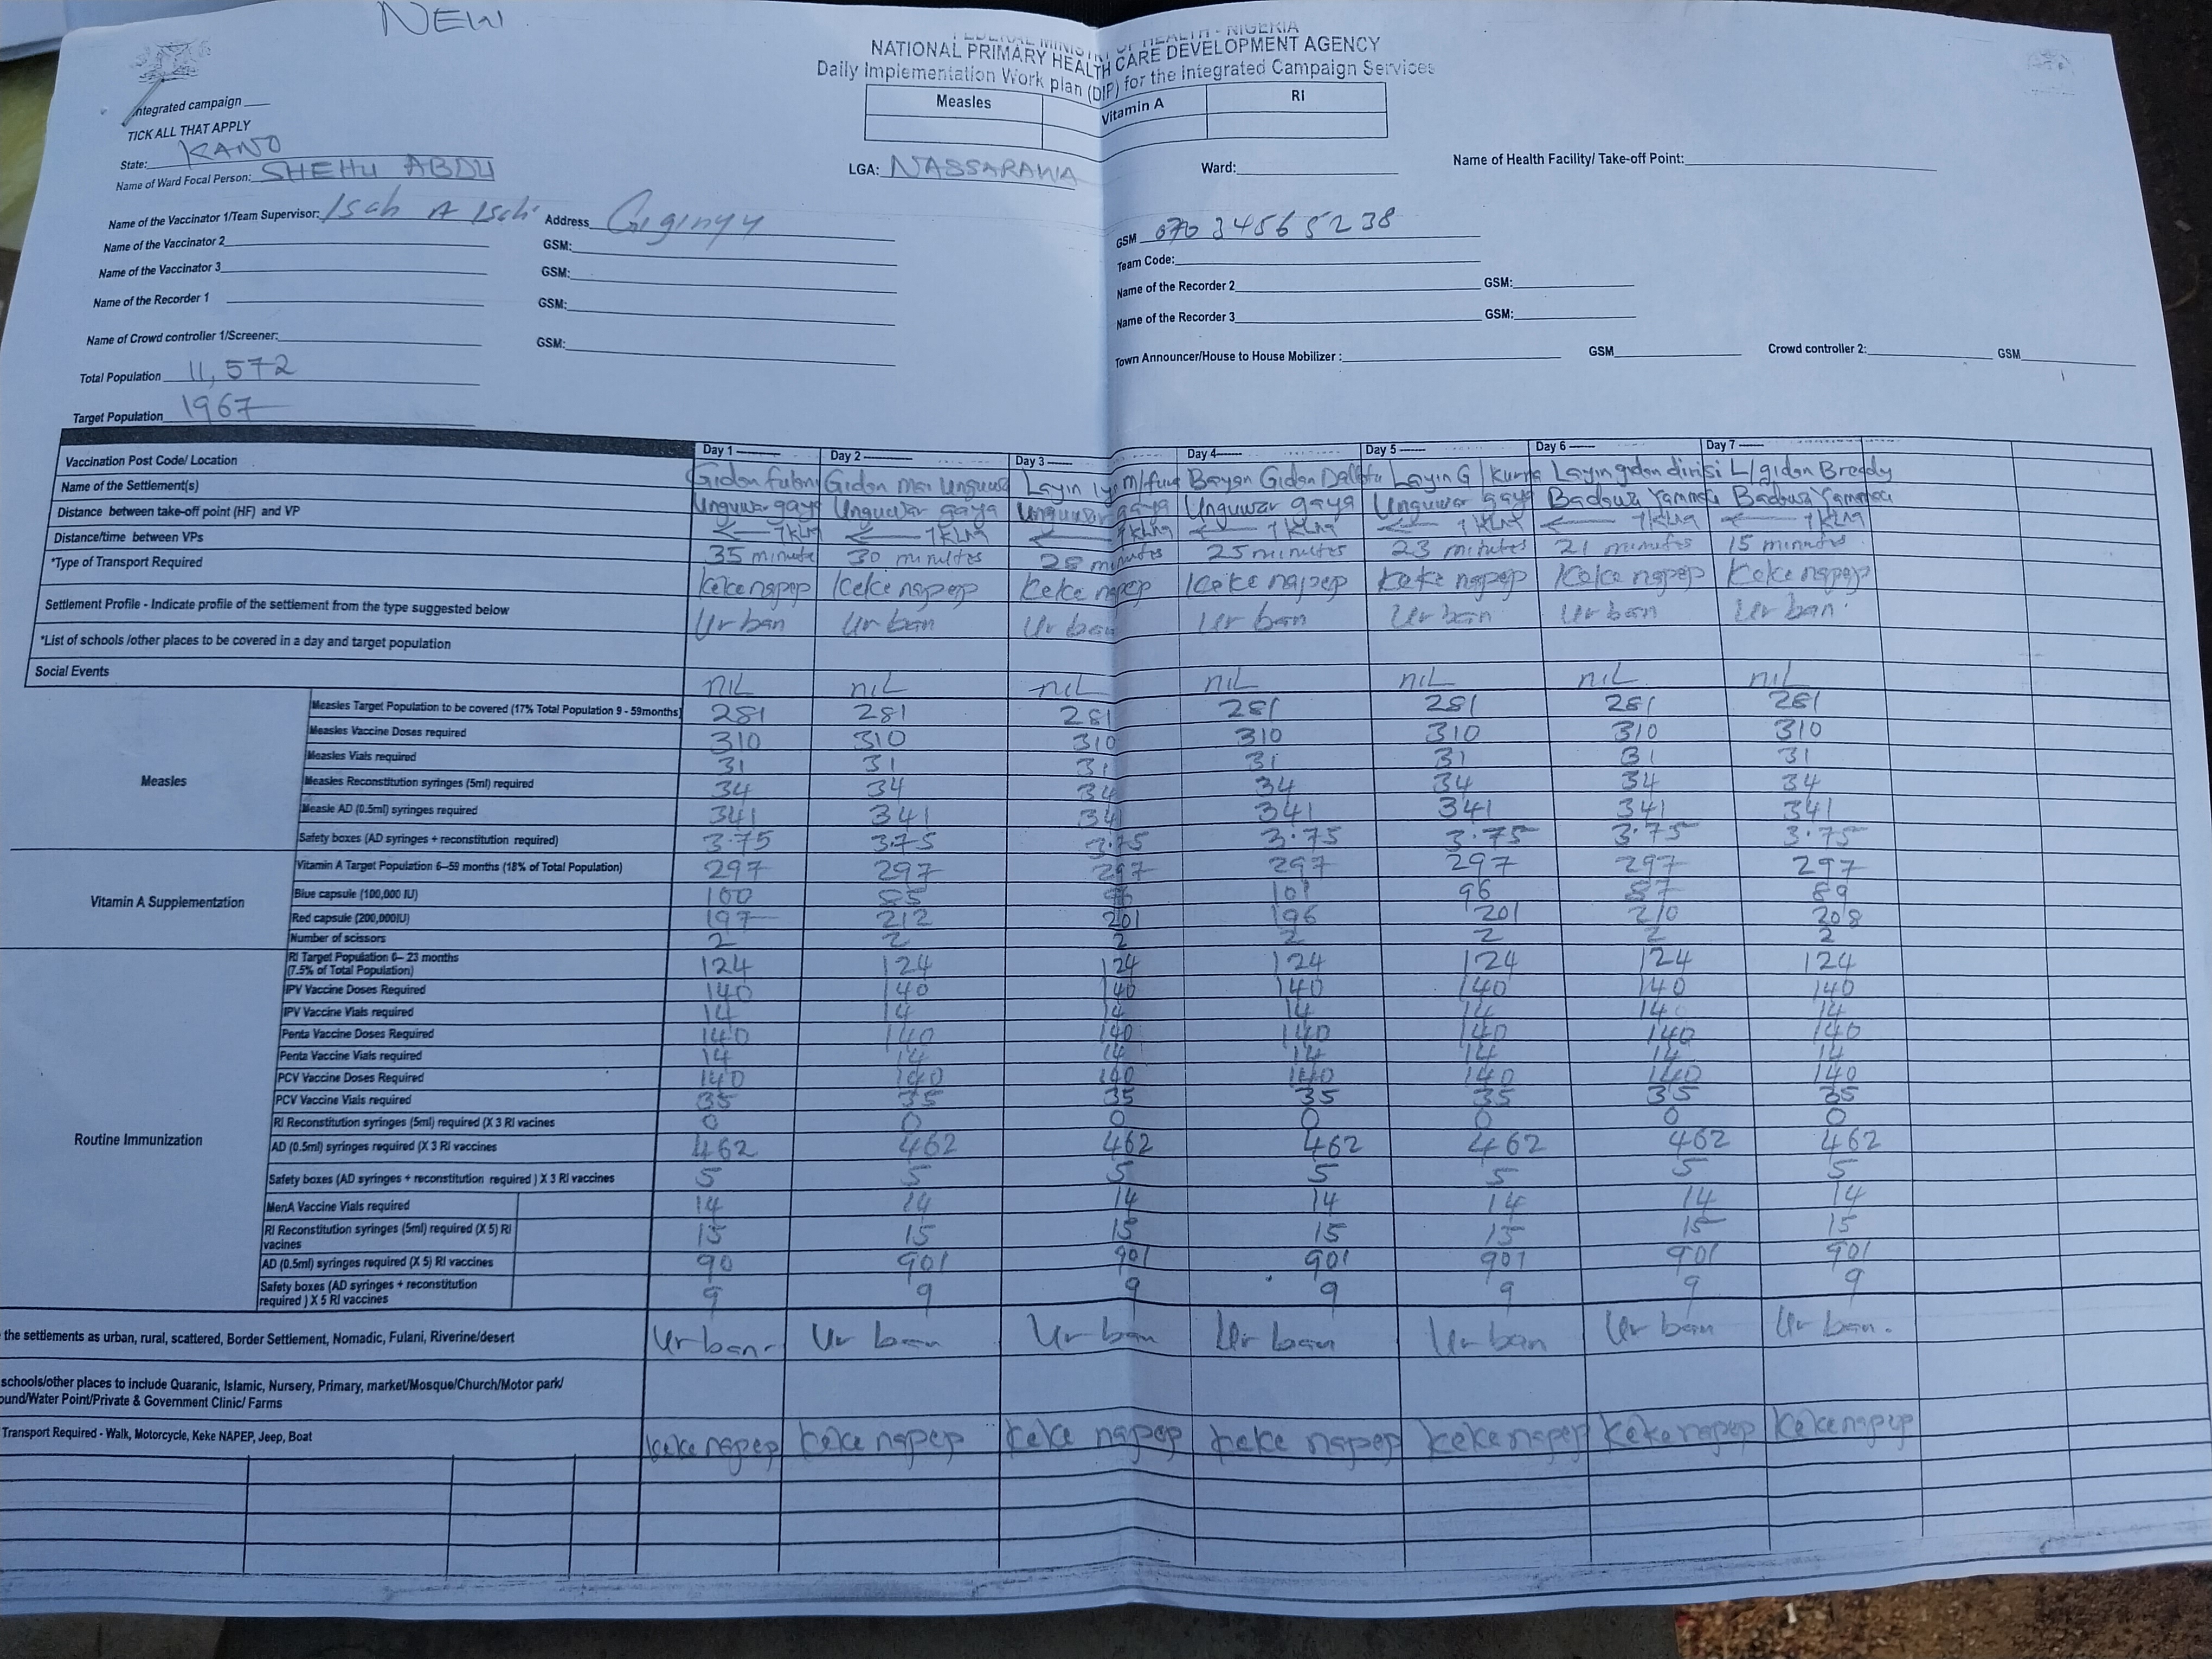 NEW
NATIONAL PRIMARY HEALTH CARE DEVELOPMENT AGENCY
Daily Implementation Work plan (DIP) for the Integrated Campaign Services
Integrated campaign
TICK ALL THAT APPLY
Measles Vitamin A RI
State: KANO LGA: NASSARAWA Ward: Name of Health Facility/ Take-off Point:
Name of Ward Focal Person: SHEHU ABDU
Name of the Vaccinator 1/Team Supervisor: Address GSM
Name of the Vaccinator 2 GSM: Team Code:
Name of the Vaccinator 3 GSM: Name of the Recorder 2 GSM:
Name of the Recorder 1 GSM: Name of the Recorder 3 GSM:
Name of Crowd controller 1/Screener: GSM: Town Announcer/House to House Mobilizer: GSM Crowd controller 2: GSM
Total Population 11,572
Target Population 1967
Day 1 Day 2 Day 3 Day 4 Day 5 Day 6 Day 7
Vaccination Post Code/ Location Gidan Fulani Gidan mai unguwa Layin Bayan Gidan Layin G/kurna Layin gidan dirisi L/gidan Bready
Name of the Settlement(s) Unguwar gaya Unguwar gaya Unguwar gaya Unguwar gaya Unguwar gaya Badawa Yamma Badawa Yamma
Distance between take-off point (HF) and VP
Distance/time between VPs 35 minute 30 minutes 28 minutes 25 minutes 23 minutes 21 minutes 15 minutes
*Type of Transport Required keke napep keke napep keke napep keke napep keke napep keke napep keke napep
Settlement Profile - Indicate profile of the settlement from the type suggested below Urban Urban Urban Urban Urban Urban Urban
*List of schools /other places to be covered in a day and target population
Social Events nil nil nil nil nil nil nil
Measles
Measles Target Population to be covered (17% Total Population 9 - 59months) 281 281 281 281 281 281 281
Measles Vaccine Doses required 310 310 310 310 310 310 310
Measles Vials required 31 31 31 31 31 31 31
Measles Reconstitution syringes (5ml) required 34 34 34 34 34 34 34
Measle AD (0.5ml) syringes required 341 341 341 341 341 341 341
Safety boxes (AD syringes + reconstitution required) 3.75 3.75 3.75 3.75 3.75 3.75 3.75
Vitamin A Supplementation
Vitamin A Target Population 6–59 months (18% of Total Population) 297 297 297 297 297 297 297
Blue capsule (100,000 IU) 100 85 96 101 96 87 89
Red capsule (200,000IU) 197 212 201 196 201 210 208
Number of scissors 2 2 2 2 2 2 2
Routine Immunization
RI Target Population 6– 23 months (7.5% of Total Population) 124 124 124 124 124 124 124
IPV Vaccine Doses Required 140 140 140 140 140 140 140
IPV Vaccine Vials required 14 14 14 14 14 14 14
Penta Vaccine Doses Required 140 140 140 140 140 140 140
Penta Vaccine Vials required 14 14 14 14 14 14 14
PCV Vaccine Doses Required 140 140 140 140 140 140 140
PCV Vaccine Vials required 35 35 35 35 35 35 35
RI Reconstitution syringes (5ml) required (X 3 RI vacines 0 0 0 0 0 0 0
AD (0.5ml) syringes required (X 3 RI vaccines 462 462 462 462 462 462 462
Safety boxes (AD syringes + reconstitution required ) X 3 RI vaccines 5 5 5 5 5 5 5
MenA Vaccine Vials required 14 14 14 14 14 14 14
RI Reconstitution syringes (5ml) required (X 5) RI vaccines 15 15 15 15 15 15 15
AD (0.5ml) syringes required (X 5) RI vaccines 90 901 901 901 901 901 901
Safety boxes (AD syringes + reconstitution required ) X 5 RI vaccines 9 9 9 9 9 9 9
the settlements as urban, rural, scattered, Border Settlement, Nomadic, Fulani, Riverine/desert Urban Urban Urban Urban Urban Urban Urban
schools/other places to include Quranic, Islamic, Nursery, Primary, market/Mosque/Church/Motor park/
ound/Water Point/Private & Government Clinic/ Farms
Transport Required - Walk, Motorcycle, Keke NAPEP, Jeep, Boat keke napep keke napep keke napep keke napep keke napep keke napep keke napep